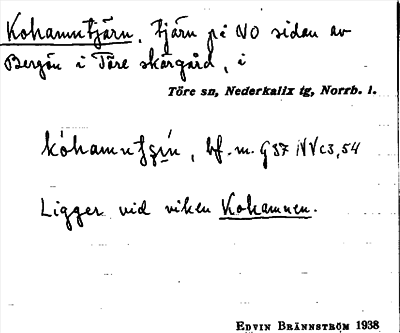 Kohamntjärn, tjärn på NO sidan av
Bergön i Töre skärgård, i
Töre sn, Nederkalix tg, Norrb. l.
bf. m.
Ligger vid viken Kohamnen.
EDVIN BRÄNNSTRÖM 1938